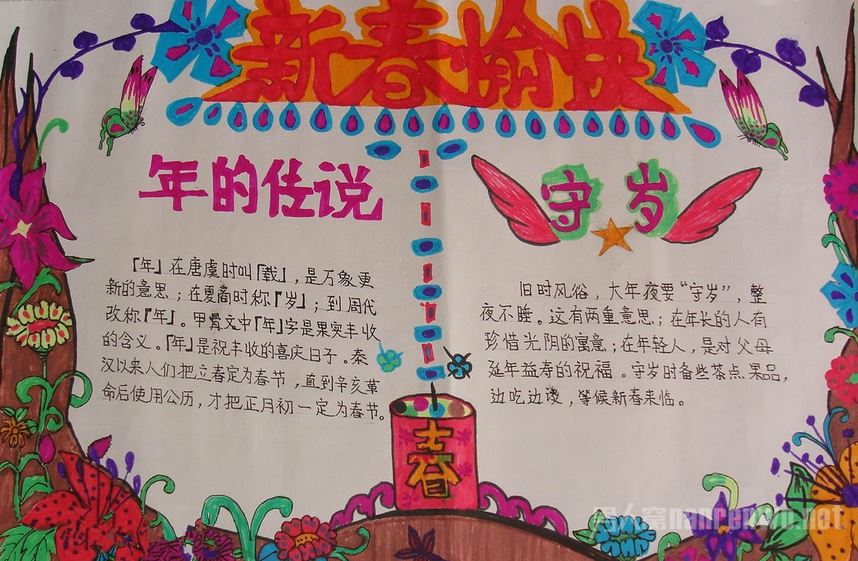 新春愉快
年的传说
「年」在唐虞时叫「载」，是万象更
新的意思；在夏商时称「岁」；到周代
改称「年」。甲骨文中「年」字是果实丰收
的含义。「年」是祝丰收的喜庆日子。秦
汉以来人们把立春定为春节，直到辛亥革
命后使用公历，才把正月初一定为春节。
守岁
旧时风俗，大年夜要“守岁”，整
夜不睡。这有两重意思；在年长的人有
珍惜光阴的寓意；在年轻人，是对父母
延年益寿的祝福。守岁时备些茶点果品，
边吃边谈，等候新春来临。
春
男人窝nanrenwo.net